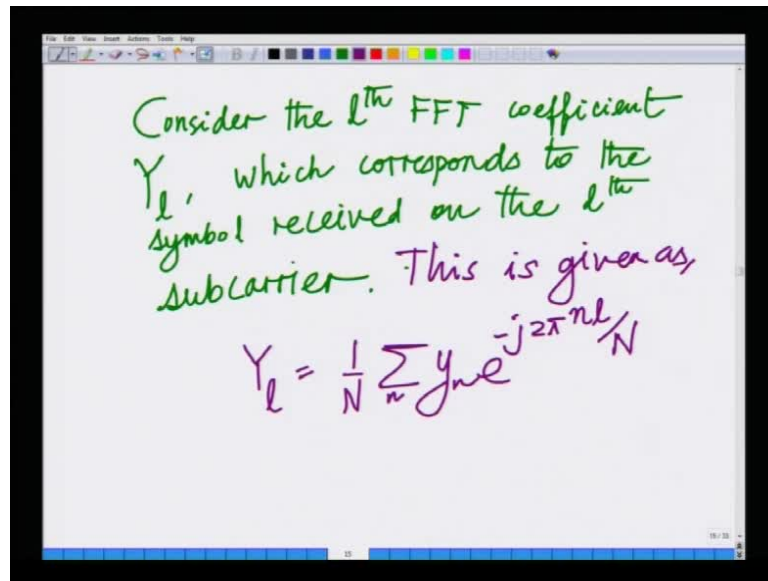 File Edit View Insert Actions Tools Help
Consider the lth FFT coefficient
Y_l, which corresponds to the
symbol received on the lth
subcarrier. This is given as,
Y_l = 1/N Σ_n y_n e^{-j2πnl/N}
15